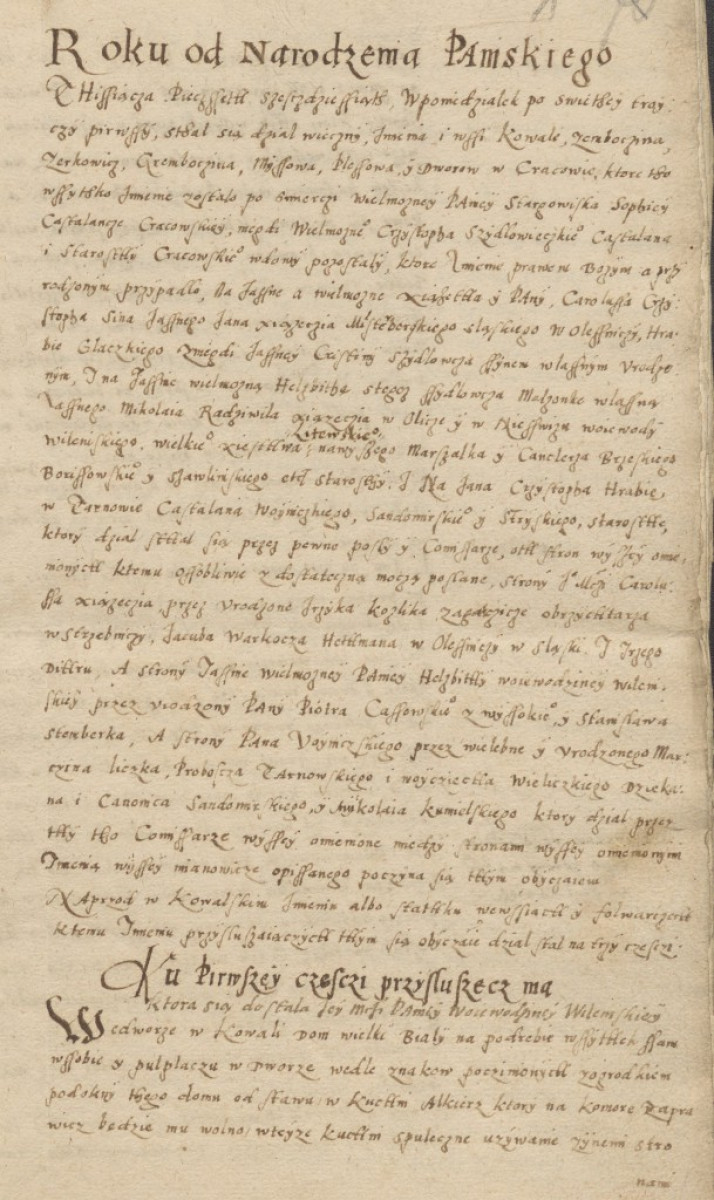 Roku od Narodzenia Pamskiego
Thissiącza Pieczssett szesczdziessiąth, W poniedzialek po swiethey tray:
czy pirwssy, sthal sią dzial wieczny, Imienia i wssi Kowale, Zemboczina,
Zerkowicz, Gremboczina, Myssowa, Plessowa, y Dworow w Cracowie, ktore tho
wssythko Imienie zostalo po smierczi wielmozney PAniey Stargowiska Sophiey
Castalancze Cracowskiey, niegdi Wielmozneo Crzystopha Szydlowieczkieo Castalana
i Starostty Cracowskieo wdowy pozostaly, ktore Imienie prawem Bozym a przy
rodzonym przypadlo, Na Jassne a wielmozne xiązetta y PAny, Carolussa Crzy:
stopha Sina Jassnego Jana xiązeczia Misterberskiego sląskiego w Olessniczy, Hra:
bie Glaczkiego zniegdi Jassney Cristiny Szydlowcza ssynem wlassnym vrodzo
nym, I na Jassnie wielmozną Helzbithą stegoz ssydlowcza Malzonke wlassną
Jassnego Mikolaia Radziwila xiązeczia w Olicze y w Niesswizu woiewody
Wilenskiego, wielkieo xiesttwa Litewskieo nawyssego Marszalka y Canclerza Brzeskiego
Borissowskieo y Szawlinskiego ett starosthy. I Na Jana Crzystopha Hrabie,
w Tarnowie Castalana Woyniczkiego, Sandomirskieo y Stryskiego, starostte,
ktory dzial sttal się przez pewne posly y Comissarze, ott stron wyssey omie:
nionych ktemu ossobliwie z dostateczną moczą poslane, strony Jo Mczi Carolu:
ssa xiązeczia, przez vrodzone Jrzyka kozlika obrzycttarza
w Strzebniczy, Jacuba Warkocza Hettmana w Olessniczy w sląski. I Jrzego
Dittru, A strony Jassnie wielmozney PAniey Helzbitty woiewodziney wilen:
skiey przez vrodzony PAny Piotra Cassowskieo z wyssokieo, y Stanislawa
stemberka, A strony PAna Voyniczskiego przez wielebne y vrodzonego Mar:
czina liczka, Proboscza Tarnowskiego i woycziectta Wieliczkiego Dzieka:
na i Canonica Sandomirskiego, y Mykolaia kumielskiego ktory dzial przez
tty tho Comissarze wyssey omienione miedzy stronami wyssey omienionym
Imienia wyssey mianowicze opissanego poczyna się ttym obyczaiem
NAprzod w Kowalskim Imieniu albo stattku wewssiach y folwarczech
ktemu Imieniu przysluszaiączych ttym się obyczaie dzial stal na trzy czesczi:
Ku Pirwszey czesczi przysluszecz ma
ktora się dostala Jey Mczi PAniey Woiewodziney Wilenskiey
Wedworze w Kowali Dom wielki Bialy na podrebie wssyttek ssam
wssobie y pulplaczu w Dworze wedle znakow poczinionych zogrodkiem
podobny thego domu od stawu, w kuchni Alkierz ktory na komore zapra
wicz bedzie mu wolno, wteyze kuchni spuleczne uzywanie zynemi stro
nami